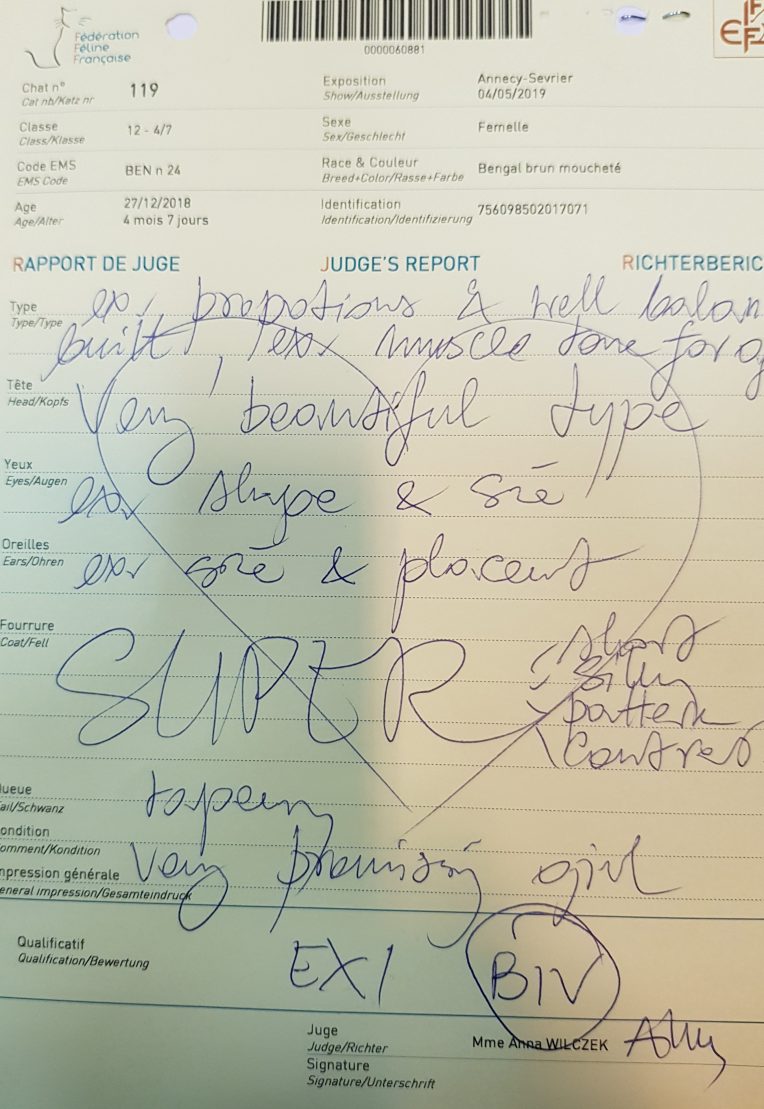 Fédération
Féline
Française
0000060881
Chat n° 119 Exposition Annecy-Sevrier
Cat nb/Katz nr Show/Ausstellung 04/05/2019
Classe 12 - 4/7 Sexe Femelle
Class/Klasse Sex/Geschlecht
Code EMS BEN n 24 Race & Couleur Bengal brun moucheté
EMS Code Breed+Color/Rasse+Farbe
Age 27/12/2018 Identification 756098502017071
Age/Alter 4 mois 7 jours Identification/Identifizierung
RAPPORT DE JUGE JUDGE'S REPORT RICHTERBERIC
Type ex, propotions & well balan
Type/Type
built, exx muscle tone for
Tête
Head/Kopfs Very beautiful type
Yeux
Eyes/Augen exx shape & size
Oreilles
Ears/Ohren exx size & placent
Fourrure short
Coat/Fell SUPER silky
pattern
contrast
ueue tapering
ail/Schwanz
ondition
omment/Kondition Very promising girl
mpression générale
eneral impression/Gesamteindruck
Qualificatif EX1 BIV
Qualification/Bewertung
Juge
Judge/Richter Mme Anna WILCZEK
Signature
Signature/Unterschrift